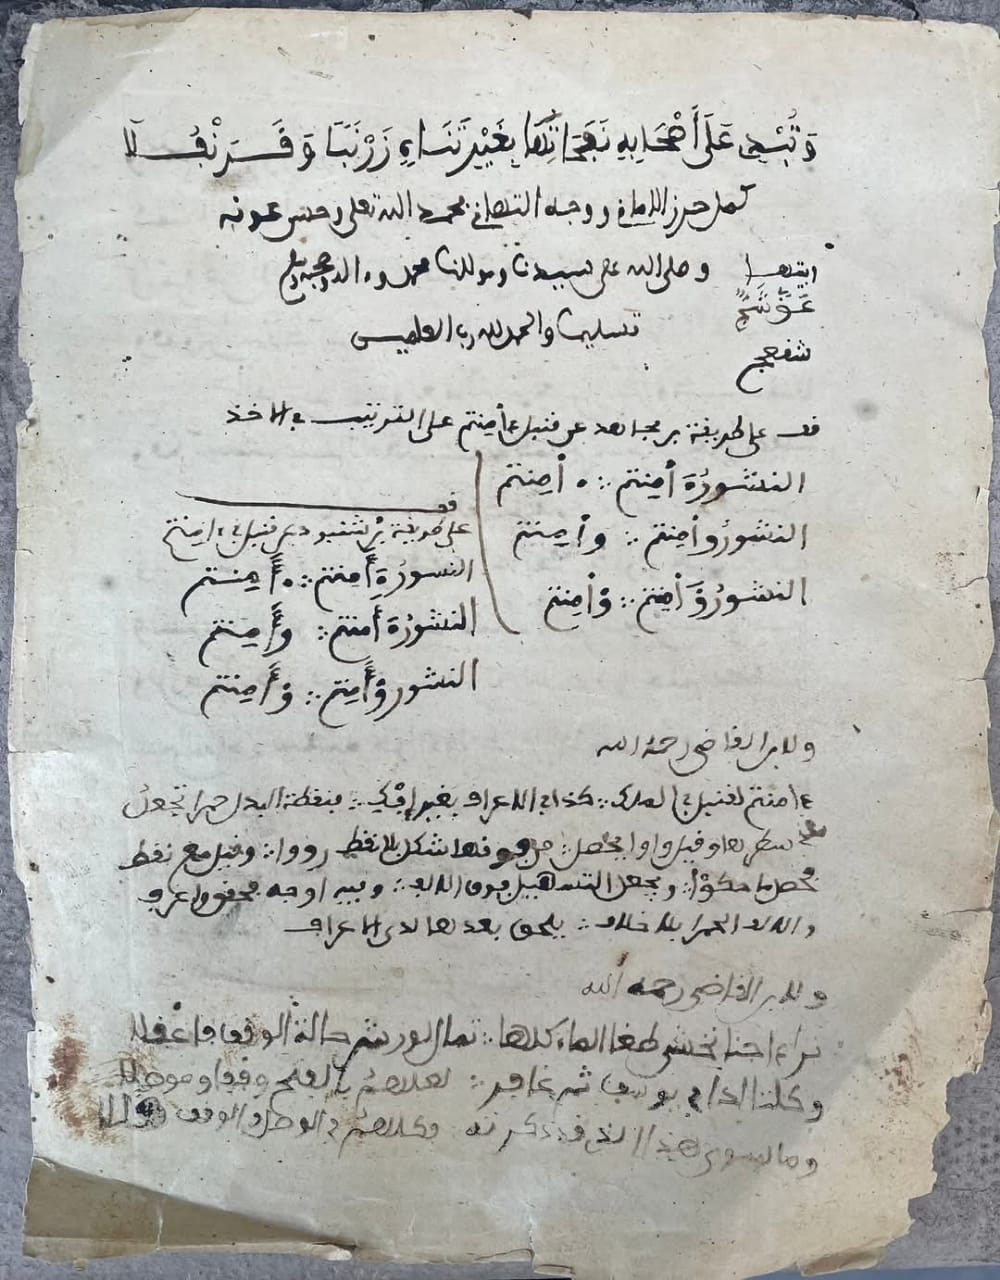 وَتُبْدِي عَلَى أَصْحَابِهِ نَفَحَاتِهَا بِغَيْرِ تَنَاهٍ زَرْنَبًا وَقَرَنْفُلَا
كمل حرز الاماني ووجه التهاني بحمد الله تعلى وحسن عونه
ابيتها وصلى الله على سيدنا ومولانا محمد وءاله وصحبه وسلم
تسليما والحمد لله رب العلمين
شفعج
قف على طريقة بن مجاهد عن قنبل ءامنتم على الترتيب في الاخذ
النشورُ وَ أمنتم ∴ ءأمنتم
النشورُ وأمنتم ∴ وأمنتم
النشورُ وَأمنتم ∴ وْأمنتم
قف
على طريقة بن شنبوذ عن قنبل في ءامنتم
النشورُ ءَأَمنتم ∴ ءأَمنتم
النشورُ وَأَمنتم ∴ وَأَمنتم
النشور وْأَمنتم ∴ وْأَمنتم
ولابن القاضي رحمه الله
ءامنتم لقنبل في الملك ∴ كذا في الاعراف بغير إفك ∴ بنقطة البدل حمرا تجعل
على سطرها وقيل واوا يحصل ∴ من فوقها شكل بلا نقط رووا ∴ وقيل مع نقط
فحصل ما حكوْا ∴ وجعل التسهيل فوق الالف ∴ وفيه اوجه فحقق واعرف
والالف الحمرا بلا خلاف ∴ يلحق بعدها لدى الاعراف
ولابن القاضي رحمه الله
تراء اجتبا تخشى طغا الماء كلها ∴ تمال لورش حالة الوقف فاعقلا
وكلتا لدا يوسف ثم غافر ∴ لعلاهم بالفتح وقفا وموصلا
وما لسوى هذا الذي قد ذكرته ∴ فكلاهم في الوصل والوقف